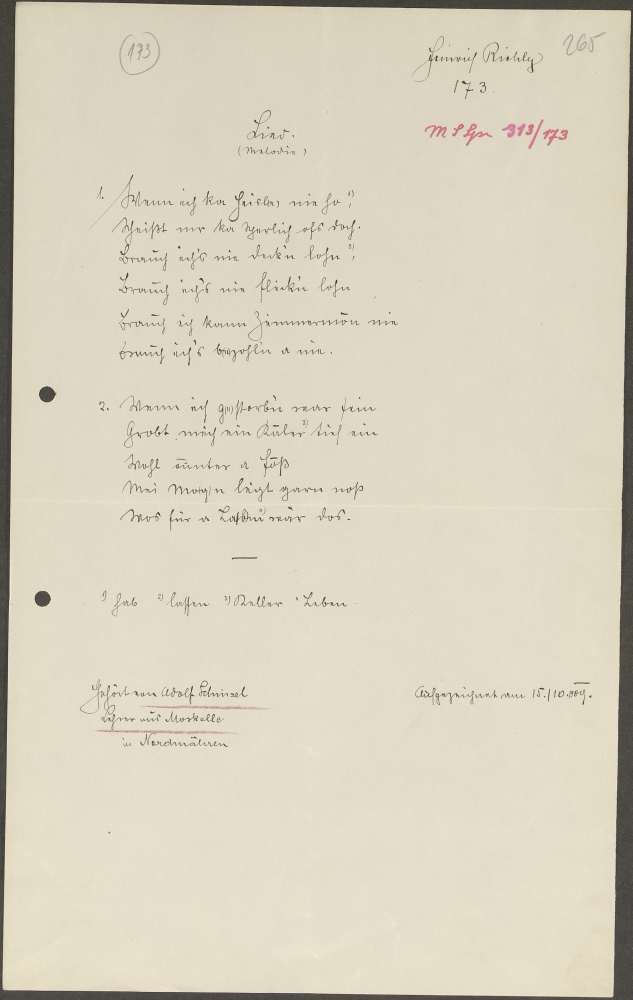 173
265
Heinrich
173.
313/173
Lied.
(Melodie)
1. Wenn ich ka Heisla nie ho 1),
Scheißt mr ka Sperlich ofs Doch.
Brauch ich's nie deck'n lohn 2),
Brauch ich's nie flick'n lohn
Brauch ich kann Zimmermōn nie
Brauch ich's bezohl'n a nie.
2. Wenn ich g(e)storb'n war sein
Grobt mich ein Käler 3) tief ein
Wohl unter a Foß
Mei Mog'n liegt garn noß
Wos für a war dos.
1) hab 2) lassen 3) Keller 4 Leben
Gehört von Adolf
Lehrer aus
in Nordmähren
Aufgezeichnet am 15./10.